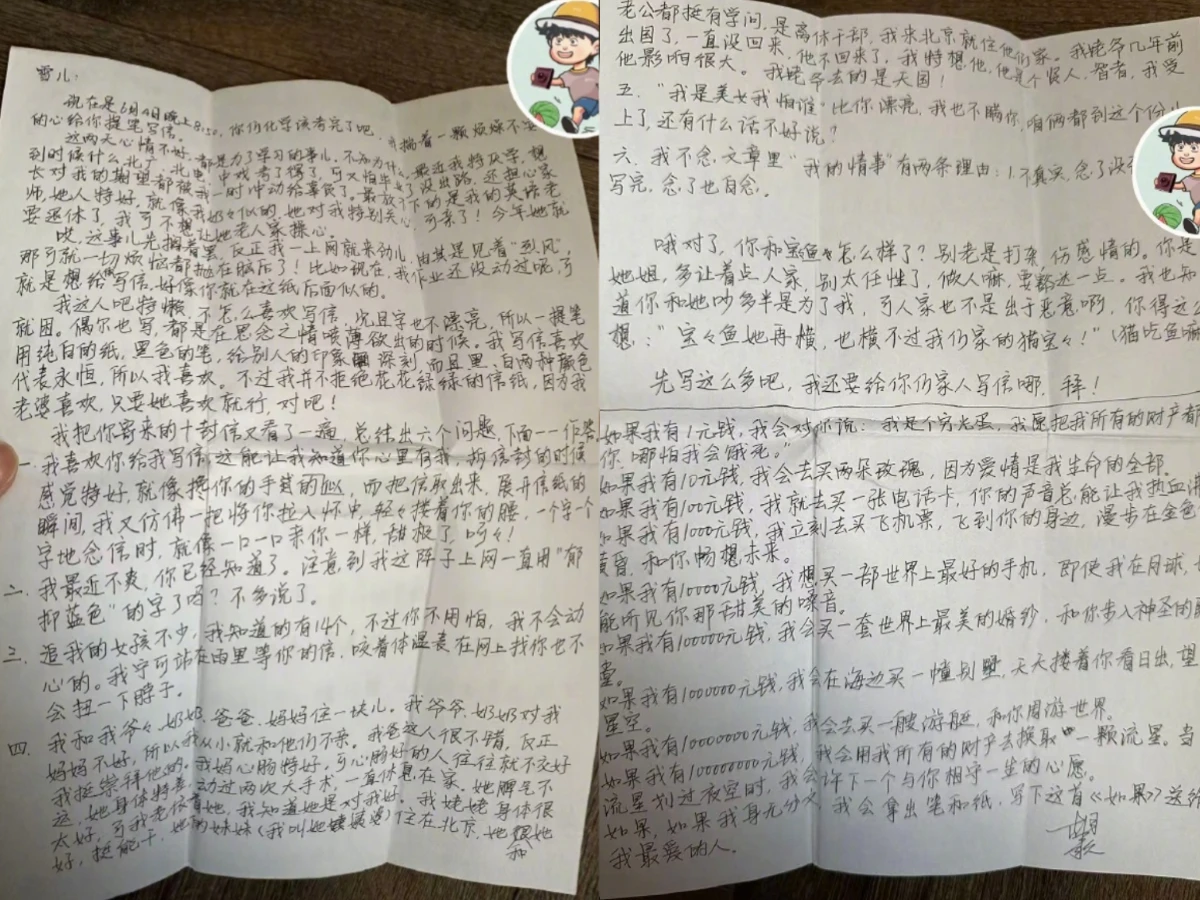 雪儿：
现在是6月4日晚上8:50，你们化学该考完了吧，我揣着一颗烦燥不安
的心给你提笔写信。
这两天心情不好，都是为了学习的事儿，不知为什么，最近我特厌学，想
到时候什么北广、北电、中戏考了得了，可又怕毕业了没出路，还担心家
长对我的期望都被我一时冲动给辜负了。最放不下的是我的英语老
师，她人特好，就像我奶奶似的，她对我特别关心，可来了！今年她就
要退休了，我可不想让她老人家操心。
哎，这事儿先搁着罢，反正我一上网就来劲儿，尤其是见着"烈风"，
那可就一切烦恼都抛在脑后了！比如说在，我作业还没动过呢，可
就是想给你写信，好像你就在这纸后面似的。
我这人吧特懒，不怎么喜欢写信，况且字也不漂亮，所以一提笔
就困。偶尔也写，都是在思念之情喷薄欲出的时候。我写信喜欢
用纯白的纸，黑色的笔，给别人的印象深刻，而且黑、白两种颜色
代表永恒，所以我喜欢。不过我并不拒绝花花绿绿的信纸，因为我
老婆喜欢，只要她喜欢就行，对吧！
我把你寄来的十封信又看了一遍，总结出六个问题，下面一一作答
一、我喜欢你给我写信，这能让我知道你心里有我，拆信封的时候
感觉特好，就像搀你的手臂的似，而把信取出来，展开信纸的
瞬间，我又仿佛一把将你拉入怀中，轻轻搂着你的腰，一个字一个
字地念信时，就像一口一口来你一样，甜极了，呵呵！
二、我最近不爽，你已经知道了。注意到我这阵子上网一直用"郁
抑蓝色"的字了吗？不多说了。
三、追我的女孩不少，我知道的有14个，不过你不用怕，我不会动
心的。我宁可站在雨里等你的信，咬着体温表在网上找你也不
会扭一下脖子。
四、我和我爷爷、奶奶、爸爸、妈妈住一块儿，我爷爷、奶奶对我
妈妈不好，所以我从小就和他们不亲。我爸这人很不错，反正
我挺崇拜他的。我妈心肠特好，可心肠好的人往往就不交好
运，她身体特差，动过两次大手术，一直休息在家。她脾气不
太好，可我老依着她，我知道她是对我好。我姥姥身体很
好，挺能干，她的妹妹（我叫她姨婆）住在北京，她跟她
老公都挺有学问，是离休干部，我来北京就住他们家。我姥爷几年前
出国了，一直没回来，他不回来了，我特想他，他是个好人，智者，我受
他影响很大。我姥爷去的是天国！
五、"我是美女我怕谁"比你漂亮，我也不瞒你，咱俩都到这个份儿
上了，还有什么话不好说？
六、我不念，文章里"我的情事"有两条理由：1.不真实，念了没
写完，念了也白念。
哦对了，你和宝鱼怎么样了？别老是打架，伤感情的。你是
她姐，多让着点人家，别太任性了，做人嘛，要豁达一点。我也知
道你和她吵多半是为了我，可人家也不是出于恶意啊，你得这么
想："宝宝鱼她再横，也横不过我们家的猫宝宝！"（猫吃鱼嘛
先写这么多吧，我还要给你们家人写信哪，拜！
如果我有1元钱，我会对你说：我是个穷光蛋，我愿把我所有的财产都
你，哪怕我会饿死。"
如果我有10元钱，我会去买两朵玫瑰，因为爱情是我生命的全部。
如果我有100元钱，我就去买一张电话卡，你的声音总能让我热血沸
如果我有1000元钱，我立刻去买飞机票，飞到你的身边，漫步在金色
黄昏，和你畅想未来。
如果我有10000元钱，我想买一部世界上最好的手机，即使我在月球，也
能听见你那甜美的嗓音。
如果我有100000元钱，我会买一套世界上最美的婚纱，和你步入神圣的
堂。
如果我有1000000元钱，我会在海边买一幢别墅，天天搂着你看日出，望
星空。
如果我有10000000元钱，我会去买一艘游艇，和你周游世界。
如果我有100000000元钱，我会用我所有的财产去换取一颗流星。当
流星划过夜空时，我会许下一个与你相守一生的心愿。
如果，如果我身无分文，我会拿出笔和纸，写下这首《如果》送给
我最爱的人。